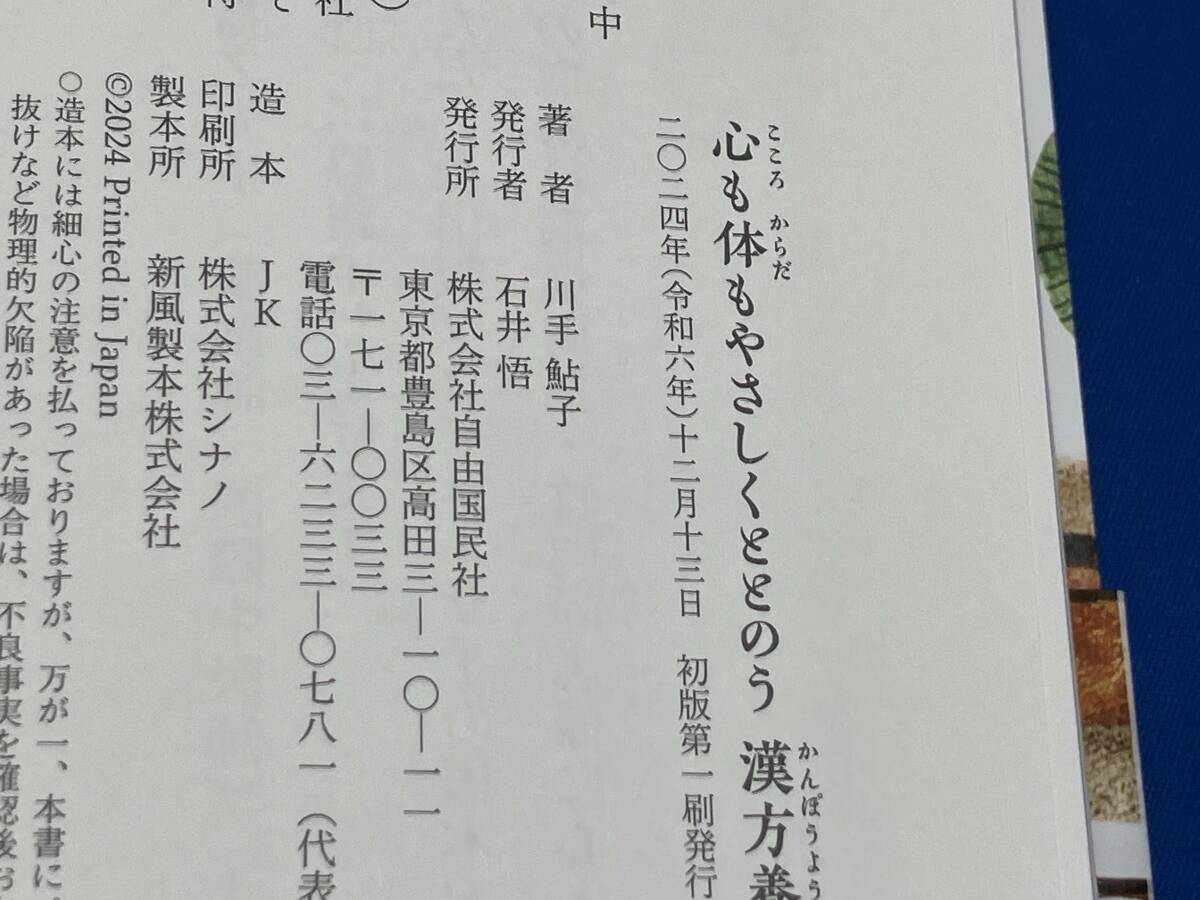 心も体もやさしくととのう 漢方養
こころ からだ かんぽうよう
二〇二四年(令和六年)十二月十三日 初版第一刷発行
中
著 者 川手 鮎子
発行者 石井 悟
発行所 株式会社自由国民社
東京都豊島区高田三―一〇―一一
〒一七一―〇〇三三
電話〇三―六二三三―〇七八一(代表
造 本 JK
印刷所 株式会社シナノ
製本所 新風製本株式会社
©2024 Printed in Japan
○造本には細心の注意を払っておりますが、万が一、本書に
抜けなど物理的欠陥があった場合は、不良事実を確認後お